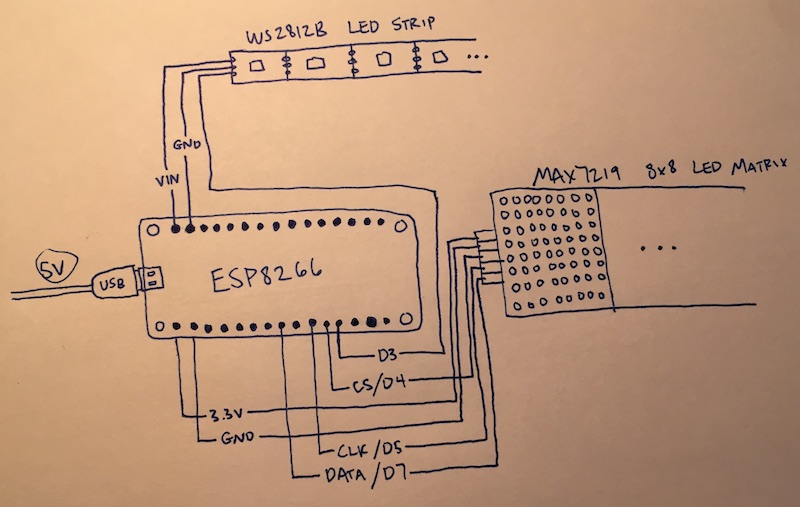 WS2812B LED STRIP
GND
VIN
MAX7219 8x8 LED MATRIX
5V
USB
ESP8266
D3
CS/D4
3.3V
GND
CLK/D5
DATA/D7